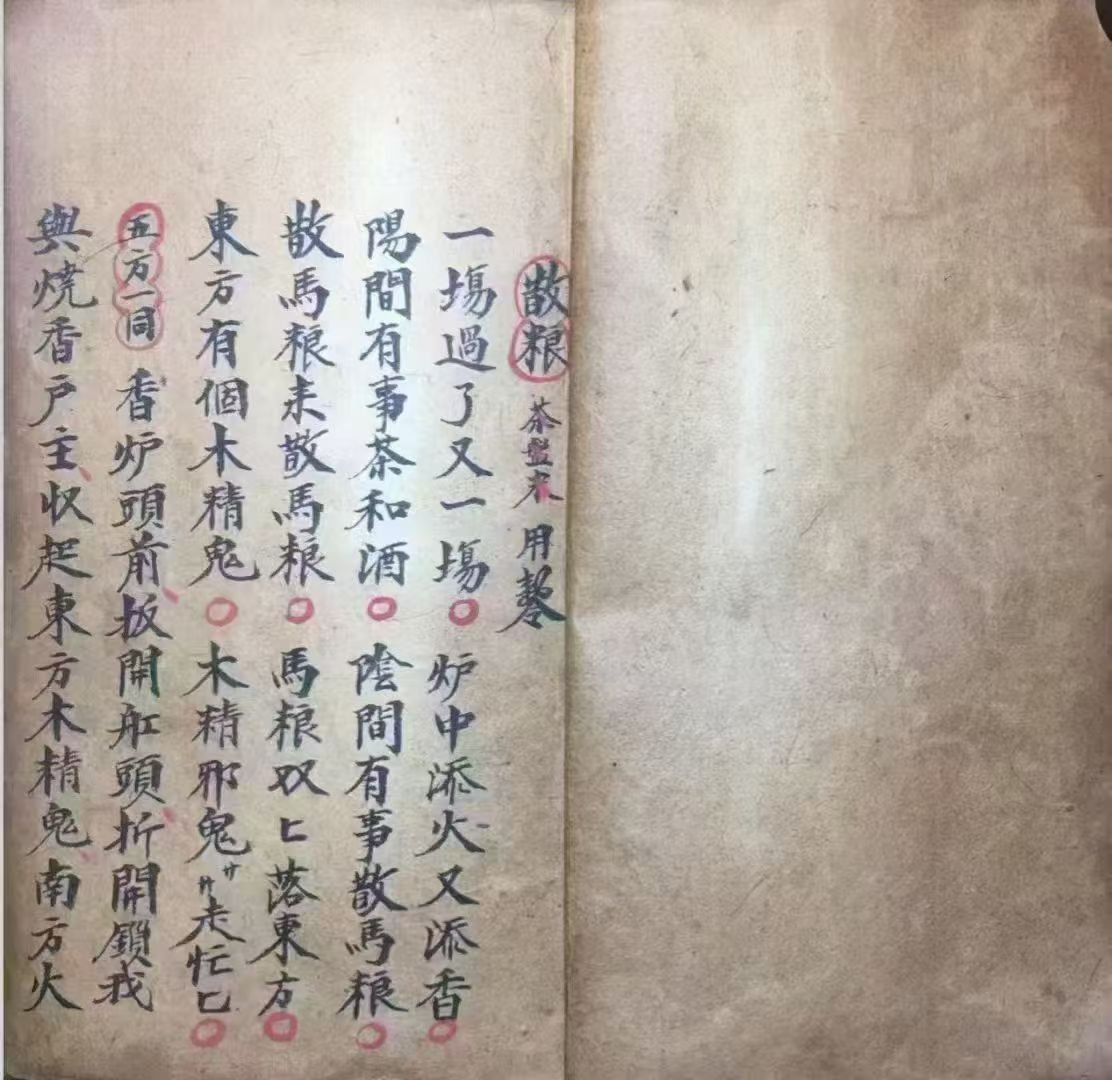 散粮 茶盤米 用
一塲過了又一塲○炉中添火又添香○
陽間有事茶和酒○陰間有事散馬粮○
散馬粮来散馬粮○馬粮双匕落東方○
東方有個木精鬼○木精邪鬼走忙匕○
五方一同 香炉頭前扳開舡頭折開鎖我
與焼香户主收起東方木精鬼南方火